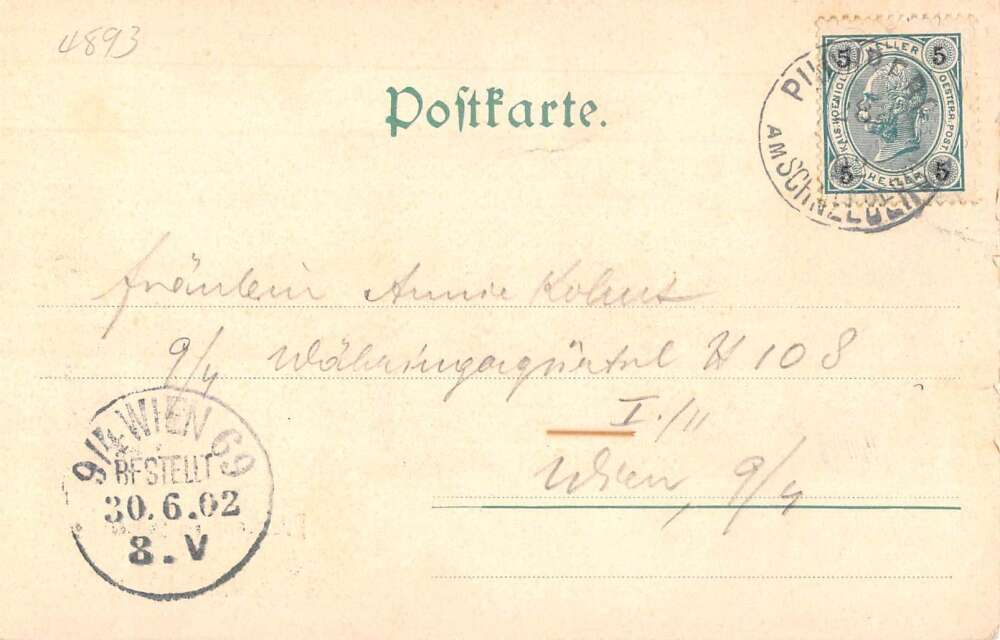 4893
Postkarte.
5 HELLER 5
KAIS. KOENIGL. OESTERR. POST.
5 HELLER 5
AM SCHNEEBERG
Fräulein Annie Kohut
9/4 Währingergürtel N 108
I./11
Wien, 9/4
9/4 WIEN 69
BESTELLT
30.6.02
8.V